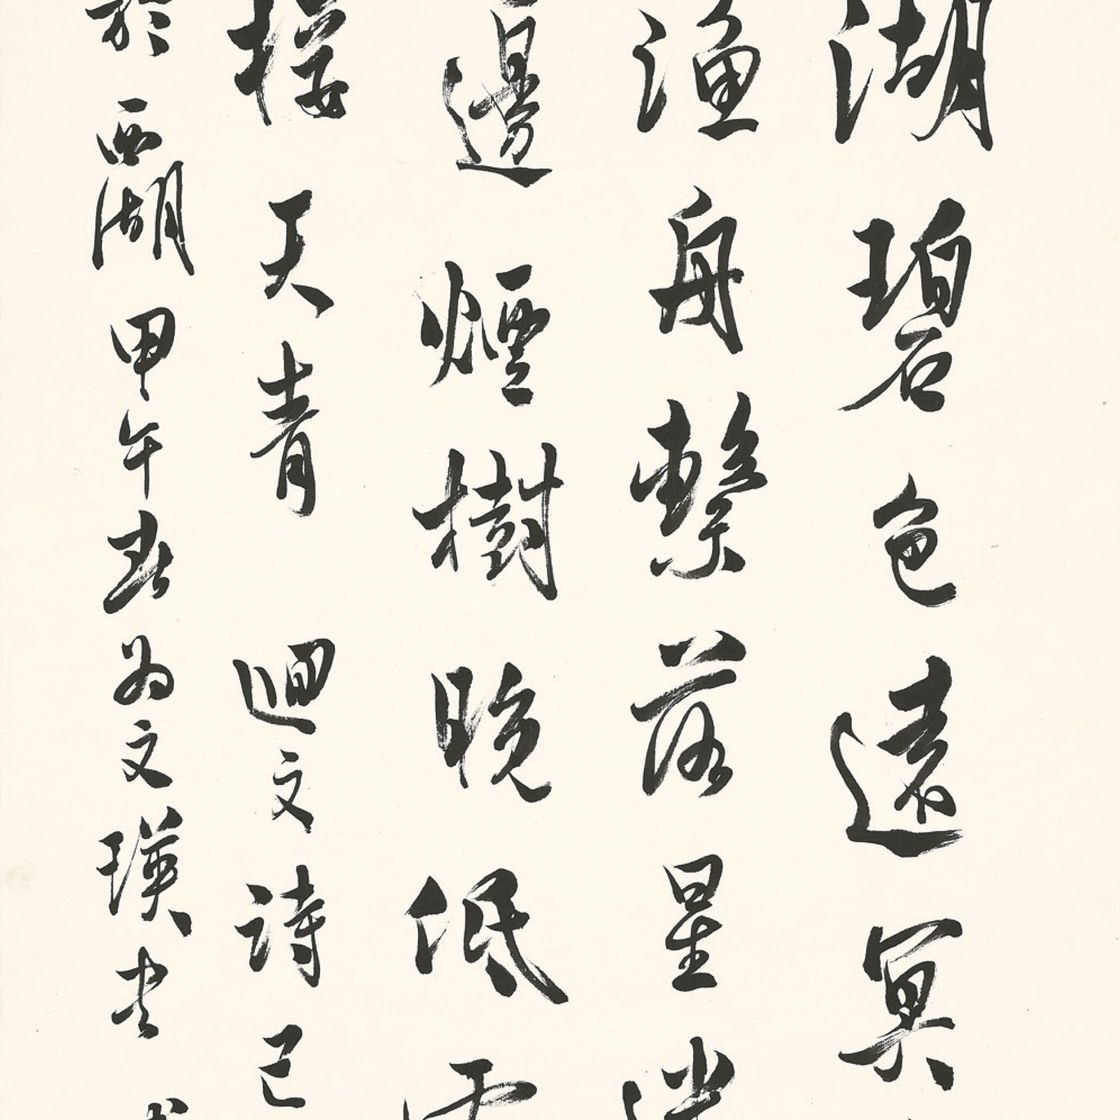 湖碧色遠冥
漁舟繫落星
邊煙樹晚低
樣天青 迴文詩 己
於西湖甲午春為文瑛書